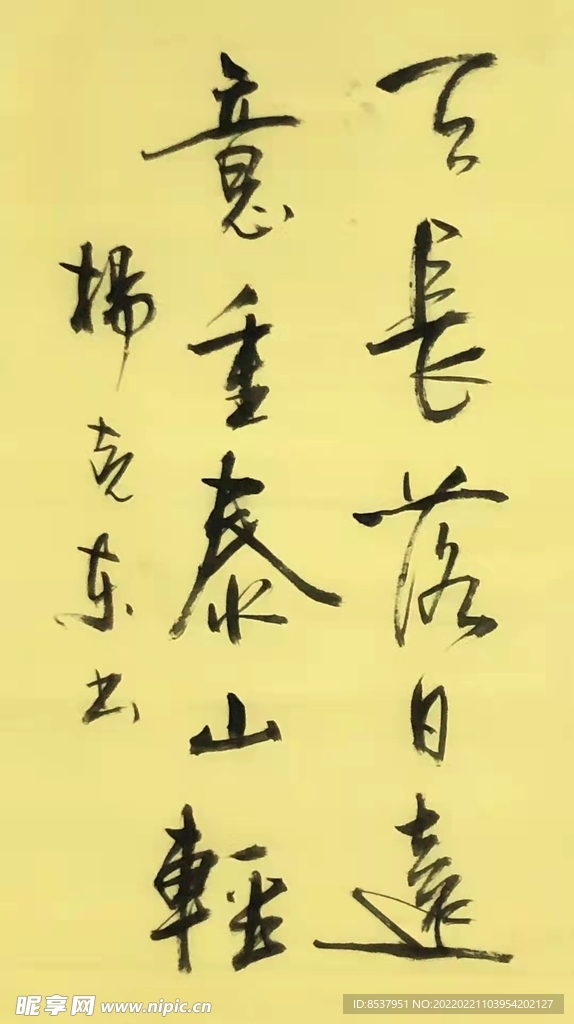 天長落日遠
意重泰山輕
楊克东书
昵享网 www.nipic.cn
ID:8537951 NO:20220221103954202127